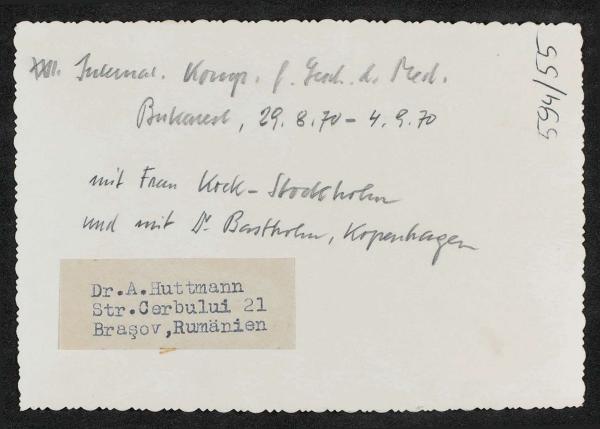 XXII. Internat. Kongr. f. Gesch. d. Med.
Bukarest, 29.8.70 - 4.9.70
mit Frau Kock - Stockholm
und mit Dr Bastholm, Kopenhagen
Dr.A.Huttmann
Str.Cerbului 21
Braşov,Rumänien